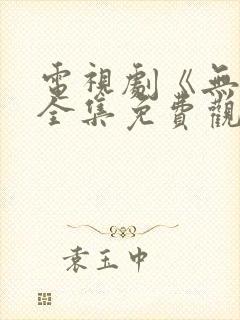 電視劇《無
全集免費觀
袁玉中